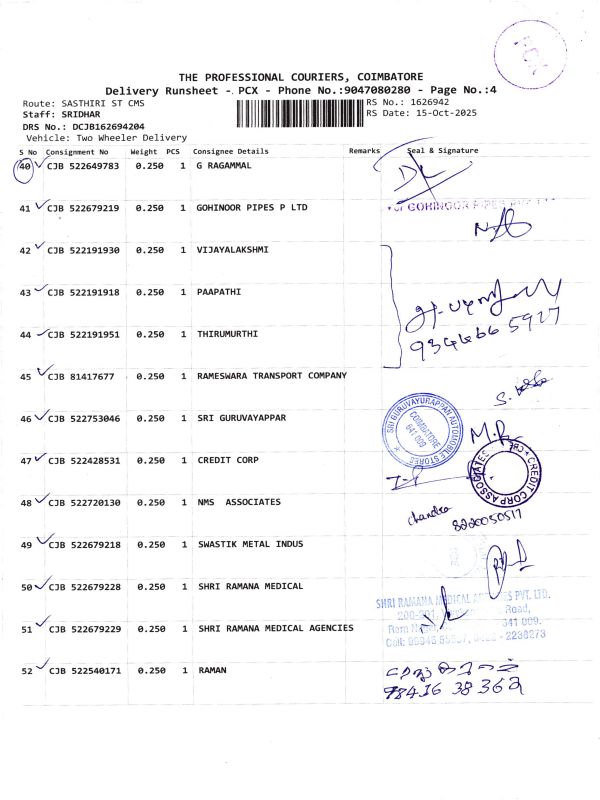 POX
THE PROFESSIONAL COURIERS, COIMBATORE
Delivery Runsheet - PCX - Phone No.:9047080280 - Page No.:4
Route: SASTHIRI ST CMS
RS No.: 1626942
Staff: SRIDHAR
RS Date: 15-Oct-2025
DRS No.: DCJB162694204
Vehicle: Two Wheeler Delivery
S No Consignment No Weight PCS Consignee Details Remarks Seal & Signature
40 CJB 522649783 0.250 1 G RAGAMMAL
41 CJB 522679219 0.250 1 GOHINOOR PIPES P LTD
GOHINOOR PIPES
42 CJB 522191930 0.250 1 VIJAYALAKSHMI
43 CJB 522191918 0.250 1 PAAPATHI
44 CJB 522191951 0.250 1 THIRUMURTHI
9346665927
45 CJB 81417677 0.250 1 RAMESWARA TRANSPORT COMPANY
46 CJB 522753046 0.250 1 SRI GURUVAYAPPAR
SRI GURUVAYURAPPAN AUTOMOBILE STORES
COIMBATORE
641 009
47 CJB 522428531 0.250 1 CREDIT CORP
CREDIT CORP ASSOCIATES
48 CJB 522720130 0.250 1 NMS ASSOCIATES
chandra
8220050517
49 CJB 522679218 0.250 1 SWASTIK METAL INDUS
50 CJB 522679228 0.250 1 SHRI RAMANA MEDICAL
SHRI RAMANA MEDICAL PVT. LTD.
Road,
51 CJB 522679229 0.250 1 SHRI RAMANA MEDICAL AGENCIES
641 009.
2236273
52 CJB 522540171 0.250 1 RAMAN
98416 38362